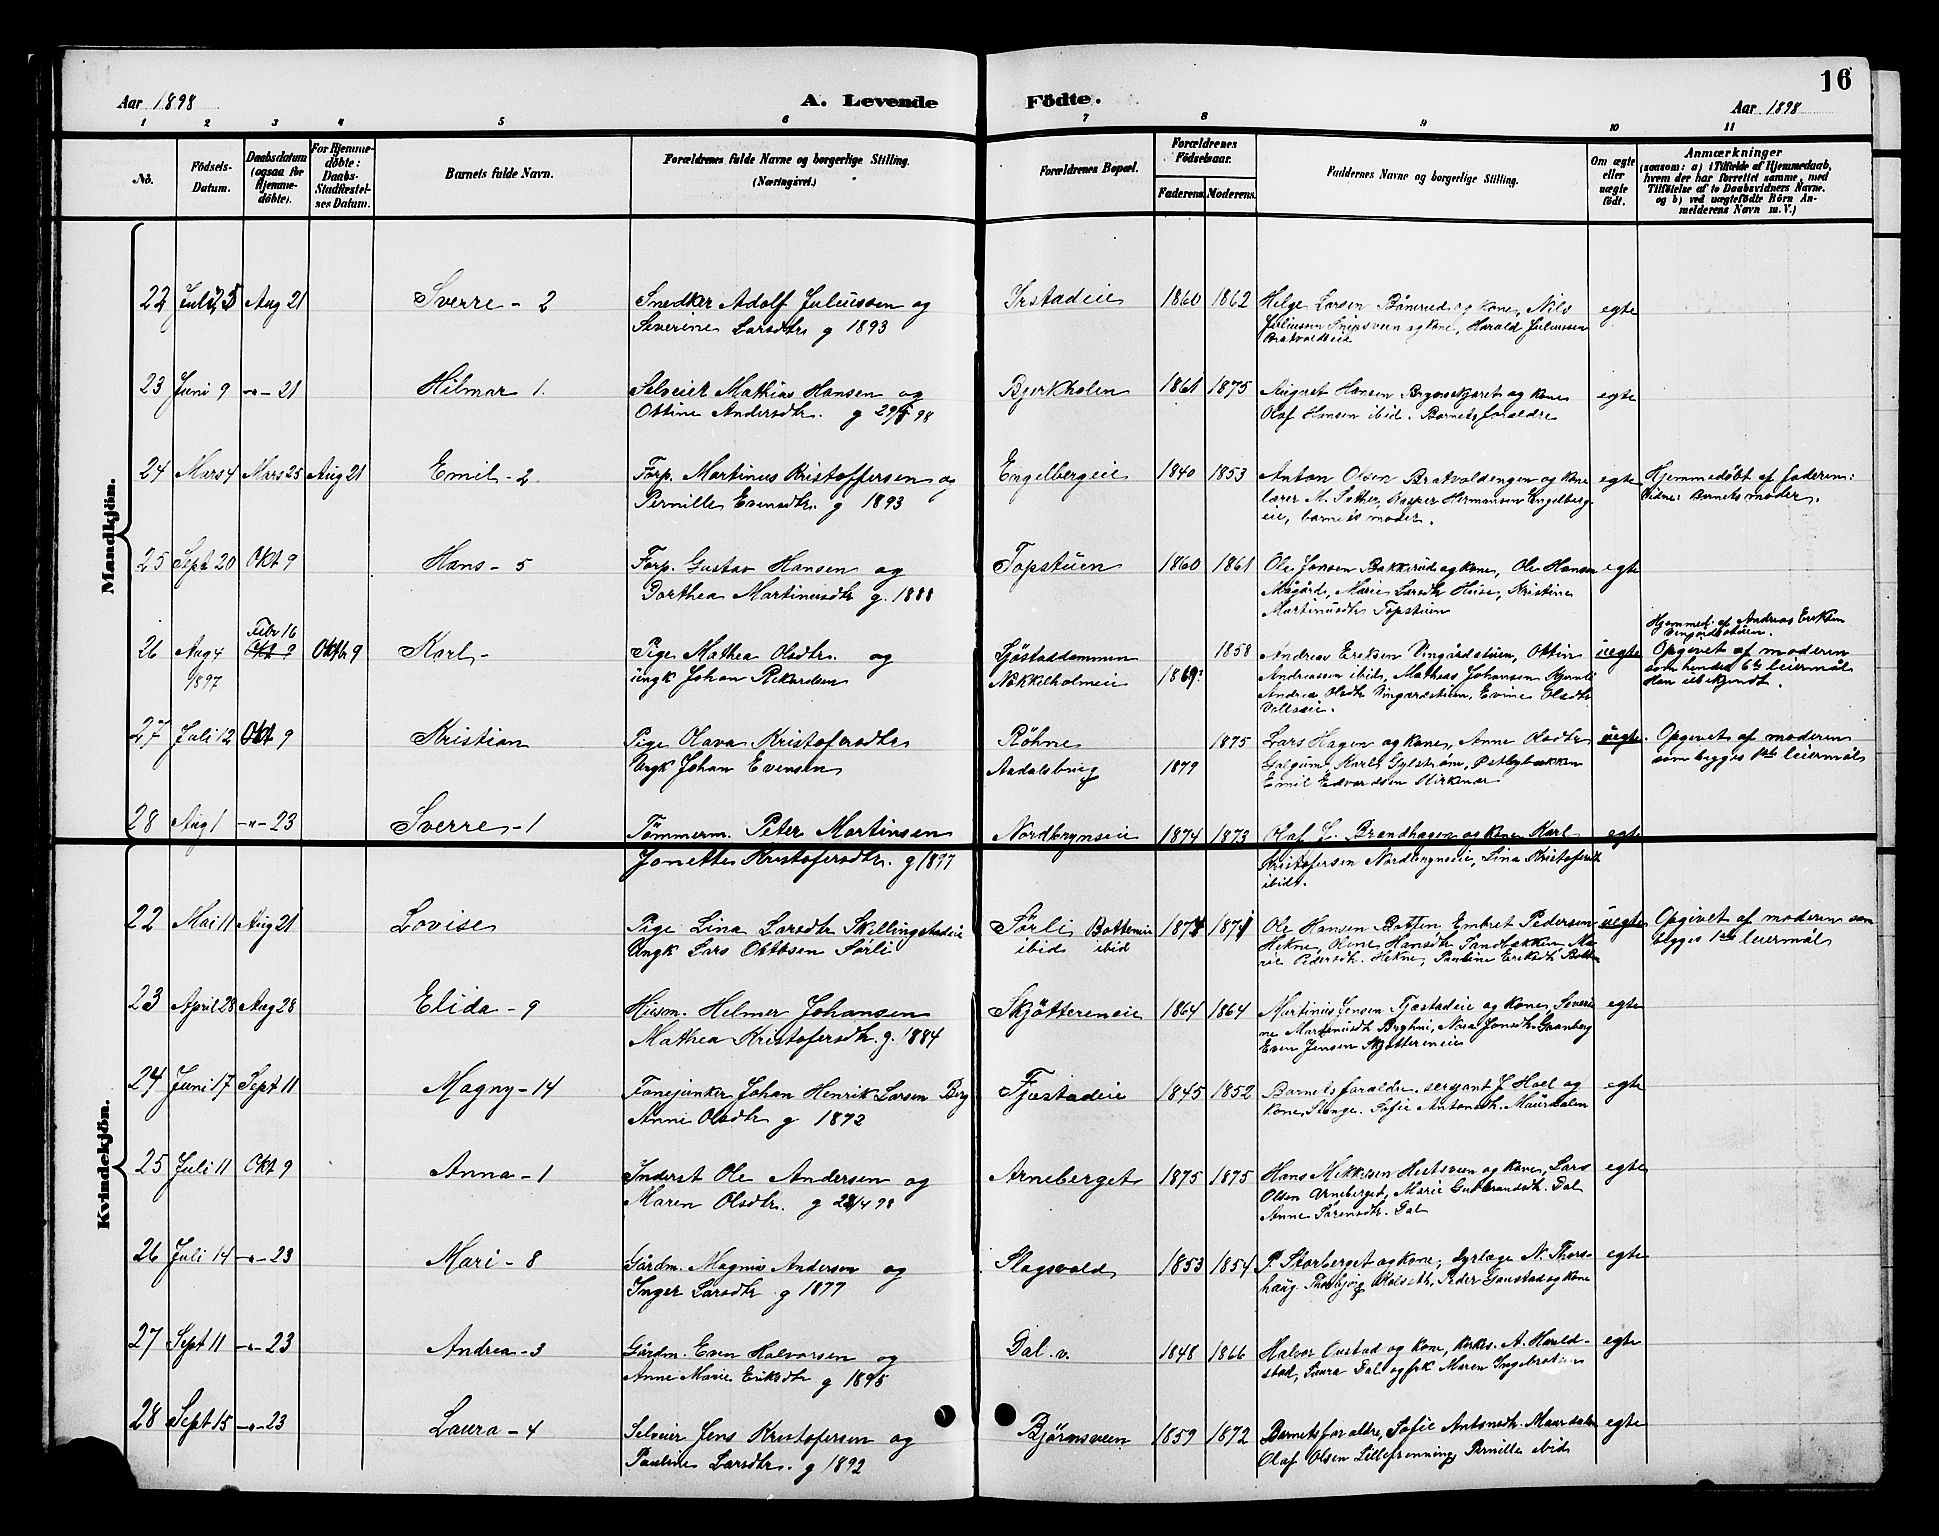 16
Aar 1898 A. Levende Födte. Aar 1898
1 2 3 4 5 6 7 8 9 10 11
No. Födsels-Datum. Daabsdatum (ogsaa for Hjemme-döbte). For Hjemme-döbte: Daabs-Stadfæstel-ses Datum. Barnets fulde Navn. Forældrenes fulde Navne og borgerlige Stilling. (Næringsvei.) Forældrenes Bopæl. Forældrenes Födselsaar. Faderens. Moderens. Faddernes Navne og borgerlige Stilling. Om ægte eller uægte födt. Anmærkninger (saasom: a) i Tilfælde af Hjemmedaab, hvem der har forrettet samme, med Tilföielse af to Daabsvidners Navne. og b) ved uægtefödte Börn An-melderens Navn m. V.)
Mandkjön.
22 Juli 25 Aug 21 Sverre - 2 Snedker Adolf Juliussen og Irstadeie 1860 1862 Helge Larsen Bånerud og kone, Nils egte
Severine Larsdtr g 1893 Juliussen Snipsveen og kone, Harald Juliussen
Bratvoldeie
23 Juni 9 -"- 21 Hilmar 1. Selveier Mathias Hansen og Bjerkholen 1861 1875 August Hansen og kone egte
Ottine Andersdtr. g 98 Olaf Hansen ibid. Barnets forældre
24 Mars 4 Mars 25 Aug 21 Emil - 2 Forp. Martinus Kristoffersen og Engelbergeie 1840 1853 Anton Olsen Bratvoldengen og kone egte Hjemmedøbt af faderen:
Pernille Evensdtr. g 1893 lærer M. Sether, Kasper Hermansen Engelberg- Vidne: Barnets moder.
eie, barnets moder.
25 Sept 20 Okt 9 Hans - 5 Forp. Gustav Hansen og Topstuen 1860 1861 Ole Jonsen Bakkerud og kone, Ole Hansen egte
Dorthea Martinusdtr g. 1888 Marie Larsdtr Huse, Kristine
Martinusdtr Topstuen
Febr 16 Hjemmed. af Andreas Eriksen
26 Aug 4 Okt 9 Oktbr 9 Karl - Pige Mathea Olsdtr. og Sjøstaddammen 1858 Andreas Eriksen Vingårdstuen, Ottin uegte Vingårdstuen. Opgivet af moderen
1897 ungk Johan Rikardsen Nokkelholmeie 1869? Andreassen ibid, Mathias Johansen som hendes 6te leiermål
Andrea Olsdtr Vingårdstuen, Evine Olsdtr han ubekjendt.
27 Juli 12 Okt 9 Kristian Pige Olava Kristofersdtr Røhne 1875 Lars Hagen og kone, Anne Olsdtr uegte. Opgivet af moderen
Ungk Johan Evensen Aadalsbrug 1879 Galgum, Karl Gylstrøm, som begges 1ste leiermål
Emil Edvardsen Kirkenær
28 Aug 1 -"- 23 Sverre - 1 Tømmerm. Peter Martinsen Nordbrynseie 1874 1873 Olaf L. Brandhagen og kone Karl egte
Jonette Kristofersdtr. g 1897 Kristofersen Nordbrynseie, Lina Kristofersdtr
ibidt.
Kvindekjön.
22 Mai 11 Aug 21 Lovise Pige Lina Larsdtr Skillingstadeie Sørli Botteneie 1871 Ole Hansen Botten Embret Pedersen uegte Opgivet af moderen som
Ungk Lars Ottosen Sørli ibid ibid Hekne, Olene Hansdtr Sandbakken, Ma- begges 1ste leiermål
rie Pedersdtr. Hekne, Pauline Eriksdtr Botten
23 April 28 Aug 28 Elida - 9 Husm. Helmer Johansen Skjøttereneie 1864 1864 Martinus Jensen Fjæstadeie og kone, Severi- egte
Mathea Kristofersdtr. g. 1884 ne Martinusdtr Berghui, Nora Jonsdtr. Graaberg
Even Jensen Skjøttereneie
24 Juni 17 Sept 11 Magny - 14 Fanejunker Johan Henrik Larsen Berg Fjæstadeie 1845 1852 Barnets forældre. serjant J Hoel og egte
Anne Olsdtr g 1872 kone, Stange. Sofie Antonsdtr. Maurdalen
25 Juli 11 Okt 9 Anna - 1 Inderst Ole Andersen og Arneberget 1875 1875 Hans Mikkelsen Hestsveen og kone, Lars egte
Maren Olsdtr. g 28/4 98 Olsen Arneberget, Marie Gulbrandsdtr. Dal
Anne Sørensdtr. Dal
26 Juli 14 -"- 23 Mari - 8 Gårdm. Magnus Andersen og Slagsvold 1853 1854 P. Storberget og kone, dyrlæge N. Thors- egte
Inger Larsdtr g 1877 haug, Thorbjørg Holseth, Peder Gaustad og kone
27 Sept 11 -"- 23 Andrea - 3 Gårdm. Even Halvorsen og Dal. v. 1848 1866 Halvor Oustad og kone, kirkes. A. Harald- egte
Anne Marie Eriksdtr g 1895 stad, Laura Dal og frk Maren Ingebretsen
28 Sept 15 -"- 23 Laura - 4 Selveier Jens Kristofersen og Bjørnsveen 1859 1872 Barnets forældre, Sofie Antonsdtr. Maurdalen egte
Pauline Larsdtr. g 1892 Olaf Olsen Lillefrenning, Pernille ibid